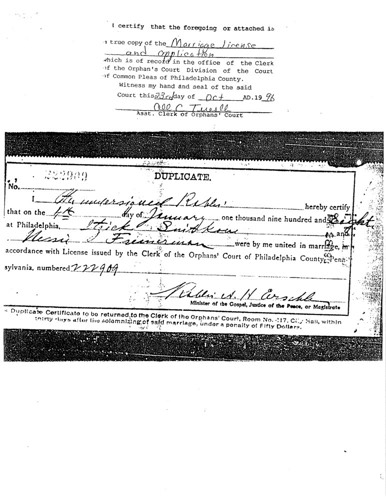 I certify that the foregoing or attached is
a true copy of the Marriage License
and application
which is of record in the office of the Clerk
of the Orphan's Court Division of the Court
of Common Pleas of Philadelphia County.
Witness my hand and seal of the said
Court this 23rd day of Oct AD.19 96
Asst. Clerk of Orphans' Court
222909
DUPLICATE.
No.
I, the undersigned Rabbi hereby certify
that on the 4th day of January one thousand nine hundred and Eight
at Philadelphia, and
Freiserman were by me united in marriage, in
accordance with License issued by the Clerk of the Orphans' Court of Philadelphia County, Penn-
sylvania, numbered 222909
Rabbi
Minister of the Gospel, Justice of the Peace, or Magistrate
Duplicate Certificate to be returned to the Clerk of the Orphans' Court, Room No. 417, City Hall, within
thirty days after the solemnizing of said marriage, under a penalty of Fifty Dollars.